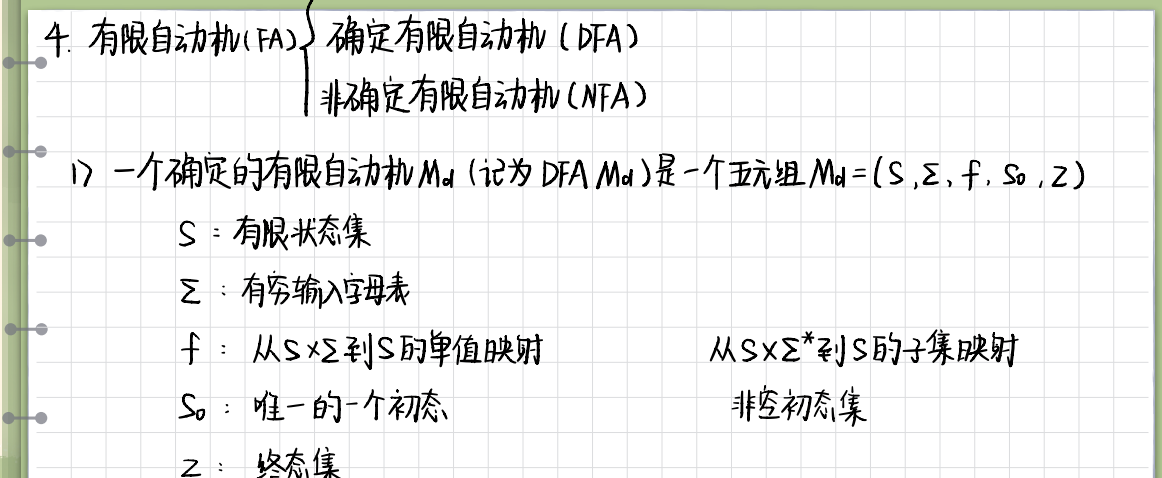 4. 有限自动机(FA) 确定有限自动机 (DFA)
非确定有限自动机(NFA)
1) 一个确定的有限自动机Md (记为DFA Md)是一个五元组Md=(S,Σ,f,S₀,Z)
S：有限状态集
Σ：有穷输入字母表
f：从S×Σ到S的单值映射 从S×Σ*到S的子集映射
S₀：唯一的一个初态 非空初态集
Z：终态集